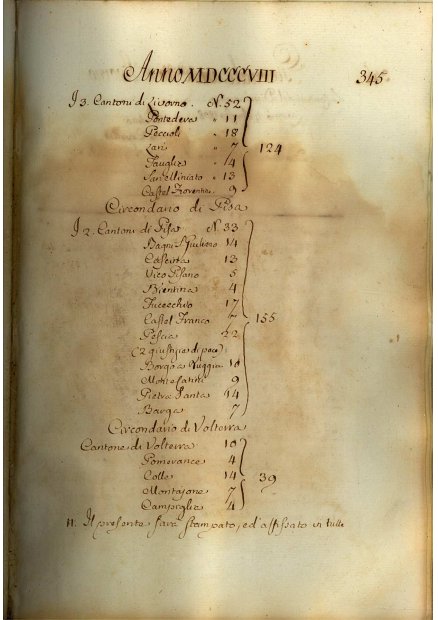 ANNO MDCCCVIII 345
I 3. Cantoni di Livorno. N. 52
Pontedera " 11
Peccioli " 18
Lari " 7 124
Fauglia " 14
Sanminiato " 13
Castel Fiorentino 9
Circondario di Pisa
I 2. Cantoni di Pisa N. 33
Bagni S. Giuliano 14
Cascina 13
Vico Pisano 5
Bientina 4
Fucecchio 17
Castel Franco 7 155
Pescia 22
(2 giustizie di pace)
Borgo a Buggiano 10
Monte Catini 9
Pietra Santa 14
Barga 7
Circondario di Volterra
Cantone di Volterra 10
Pomerance 4
Colle 14 39
Montajone 7
Campiglia 4
11. Il presente sarà stampato, ed affissato in tutte